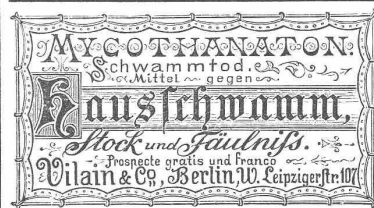 MYCOTHANATON.
Schwammtod.
Mittel gegen
Hausſchwamm,
Stock und Fäulniſs.
Prospecte gratis und franco
Vilain & Co., Berlin W. Leipzigerſtr. 107